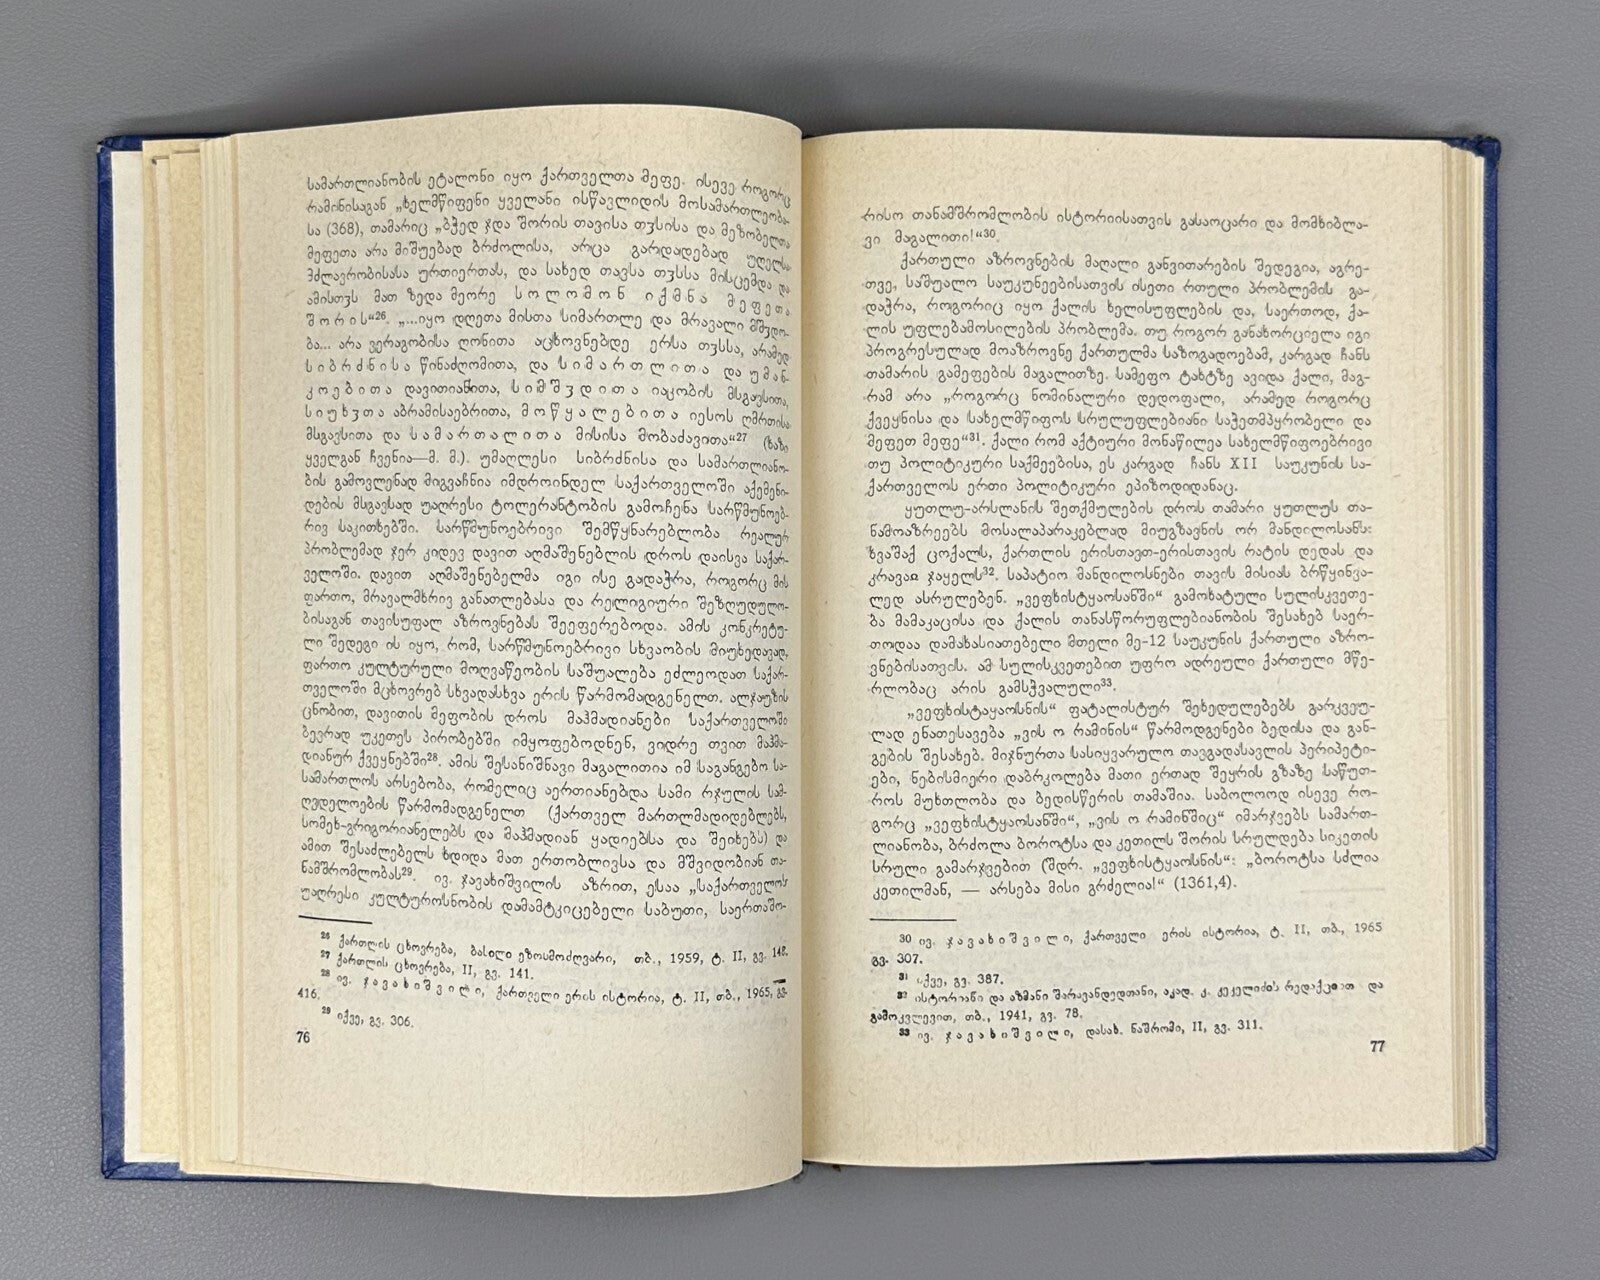 სამართლიანობის ეტალონი იყო ქართველთა მეფე. ისევე როგორც
რამინისაგან „ხელმწიფენი ყველანი ისწავლიდის მოსამართლეობა-
სა (368), თამარიც „ბჭედ ჯდა შორის თავისა თჳსისა და მეზობელთა
მეფეთა არა მიშუებად ბრძოლისა, არცა გარდადებად უღელსა
მძლავრობისასა ურთიერთას, და სახედ თავსა თჳსსა მისცემდა და
ამისთჳს მათ ზედა მეორე სოლომონ იქმნა მეფეთა
შორის“26. „...იყო დღეთა მისთა სიმართლე და მრავალი მშჳდო-
ბა... არა ვერაგობისა ღონითა აცხოვნებდე ერსა თჳსსა, არამედ
სიბრძნისა წინაძღომითა, და სიმართლითა და უმან-
კოებითა დავითიანითა, სიმშჳდითა იაკობის მსგავსითა,
სიუხჳთა აბრამისაებრითა, მოწყალებითა იესოს ღმრთისა
მსგავსითა და სამართალითა მისისა მობაძავითა“27 (ხაზი
ყველგან ჩვენია—მ. მ.). უმაღლესი სიბრძნისა და სამართლიანო-
ბის გამოვლენად მიგვაჩნია იმდროინდელ საქართველოში აქემენი-
დების მსგავსად უაღრესი ტოლერანტობის გამოჩენა სარწმუნოებ-
რივ საკითხებში. სარწმუნოებრივი შემწყნარებლობა რეალურ
პრობლემად ჯერ კიდევ დავით აღმაშენებლის დროს დაისვა საქარ-
ველოში. დავით აღმაშენებელმა იგი ისე გადაჭრა, როგორც მის
ფართო, მრავალმხრივ განათლებასა და რელიგიური შეზღუდულო-
ბისაგან თავისუფალ აზროვნებას შეეფერებოდა. ამის კონკრეტუ-
ლი შედეგი ის იყო, რომ, სარწმუნოებრივი სხვაობის მიუხედავად,
ფართო კულტურული მოღვაწეობის საშუალება ეძლეოდათ საქარ-
თველოში მცხოვრებ სხვადასხვა ერის წარმომადგენელთ. ალჯაუზის
ცნობით, დავითის მეფობის დროს მაჰმადიანები საქართველოში
ბევრად უკეთეს პირობებში იმყოფებოდნენ, ვიდრე თვით მაჰმა-
დიანურ ქვეყნებში28. ამის შესანიშნავი მაგალითია იმ საგანგებო სა-
სამართლოს არსებობა, რომელიც აერთიანებდა სამი რჯულის სამ-
ღვდელოების წარმომადგენელთ (ქართველ მართლმადიდებლებს,
სომეხ-გრიგორიანელებს და მაჰმადიან ყადიებსა და შეიხებს) და
ამით შესაძლებელს ხდიდა მათ ერთობლივსა და მშვიდობიან თა-
ნამშრომლობას29. ივ. ჯავახიშვილის აზრით, ესაა „საქართველოს
უაღრესი კულტუროსნობის დამამტკიცებელი საბუთი, საერთაშო-
26 ქართლის ცხოვრება, ბასილი ეზოსმოძღვარი, თბ., 1959, ტ. II, გვ. 148.
27 ქართლის ცხოვრება, II, გვ. 141.
28 ივ. ჯავახიშვილი, ქართველი ერის ისტორია, ტ. II, თბ., 1965, გვ.
416.
29 იქვე, გვ. 306.
76
რისო თანამშრომლობის ისტორიისათვის გასაოცარი და მომხიბლა-
ვი მაგალითი!“30.
ქართული აზროვნების მაღალი განვითარების შედეგია, აგრე-
თვე, საშუალო საუკუნეებისათვის ისეთი რთული პრობლემის გა-
დაჭრა, როგორიც იყო ქალის ხელისუფლების და, საერთოდ, ქა-
ლის უფლებამოსილების პრობლემა. თუ როგორ განახორციელა იგი
პროგრესულად მოაზროვნე ქართულმა საზოგადოებამ, კარგად ჩანს
თამარის გამეფების მაგალითზე. სამეფო ტახტზე ავიდა ქალი, მაგ-
რამ არა „როგორც ნომინალური დედოფალი, არამედ როგორც
ქვეყნისა და სახელმწიფოს სრულუფლებიანი საჭეთმპყრობელი და
მეფეთ მეფე“31. ქალი რომ აქტიური მონაწილეა სახელმწიფოებრივი
თუ პოლიტიკური საქმეებისა, ეს კარგად ჩანს XII საუკუნის სა-
ქართველოს ერთი პოლიტიკური ეპიზოდიდანაც.
ყუთლუ-არსლანის შეთქმულების დროს თამარი ყუთლუს თა-
ნამოაზრეებს მოსალაპარაკებლად მიუგზავნის ორ მანდილოსანს:
ხვაშაქ ცოქალს, ქართლის ერისთავთ-ერისთავის რატის დედას და
კრავაჲ ჯაყელს32. საპატიო მანდილოსნები თავის მისიას ბრწყინვა-
ლედ ასრულებენ. „ვეფხისტყაოსანში“ გამოხატული სულისკვეთე-
ბა მამაკაცისა და ქალის თანასწორუფლებიანობის შესახებ საერ-
თოდაა დამახასიათებელი მთელი მე-12 საუკუნის ქართული აზრო-
ვნებისათვის. ამ სულისკვეთებით უფრო ადრეული ქართული მწე-
რლობაც არის გამსჭვალული33.
„ვეფხისტყაოსნის“ ფატალისტურ შეხედულებებს გარკვეუ-
ლად ენათესავება „ვის ო რამინის“ წარმოდგენები ბედისა და გან-
გების შესახებ. მიჯნურთა სასიყვარულო თავგადასავლის პერიპეტი-
ები, ნებისმიერი დაბრკოლება მათი ერთად შეყრის გზაზე საწუთ-
როს მუხთლობა და ბედისწერის თამაშია. საბოლოოდ ისევე რო-
გორც „ვეფხისტყაოსანში“, „ვის ო რამინშიც“ იმარჯვებს სამართ-
ლიანობა, ბრძოლა ბოროტსა და კეთილს შორის სრულდება სიკეთის
სრული გამარჯვებით (შდრ. „ვეფხისტყაოსნის“: „ბოროტსა სძლია
კეთილმან, — არსება მისი გრძელია!“ (1361,4).
30 ივ. ჯავახიშვილი, ქართველი ერის ისტორია, ტ. II, თბ., 1965
გვ. 307.
31 იქვე, გვ. 387.
32 ისტორიანი და აზმანი შარავანდედთანი, აკად. კ. კეკელიძის რედაქციით და
გამოკვლევით, თბ., 1941, გვ. 78.
33 ივ. ჯავახიშვილი, დასახ. ნაშრომი, II, გვ. 311.
77